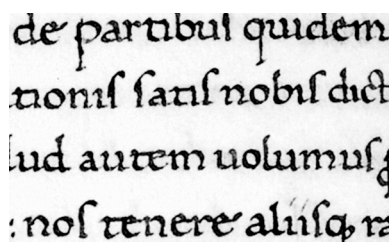 de partibuſ quidem
tioniſ ſatiſ nobiſ dict
lud autem uolumuſ q
: noſ tenere aliiſq; ra